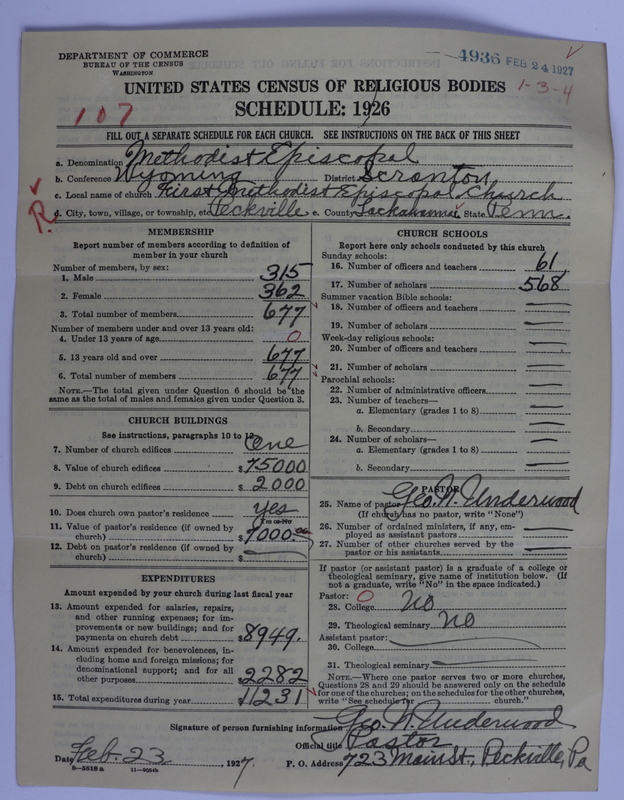 DEPARTMENT OF COMMERCE
BUREAU OF THE CENSUS
WASHINGTON
4936 FEB 24 1927
UNITED STATES CENSUS OF RELIGIOUS BODIES
1-3-4
107
SCHEDULE: 1926
FILL OUT A SEPARATE SCHEDULE FOR EACH CHURCH. SEE INSTRUCTIONS ON THE BACK OF THIS SHEET
a. Denomination Methodist Episcopal
b. Conference Wyoming District Scranton
c. Local name of church First Methodist Episcopal Church
R.
d. City, town, village, or township, etc. Peckville e. County Lackawanna, State Penn.
MEMBERSHIP
Report number of members according to definition of
member in your church
Number of members, by sex:
1. Male 315
2. Female 362
3. Total number of members 677
Number of members under and over 13 years old:
4. Under 13 years of age 0
5. 13 years old and over 677
6. Total number of members 677
NOTE.—The total given under Question 6 should be the
same as the total of males and females given under Question 3.
CHURCH BUILDINGS
See instructions, paragraphs 10 to 12
7. Number of church edifices One
8. Value of church edifices $75000
9. Debt on church edifices $2000
10. Does church own pastor's residence yes
(Yes or No)
11. Value of pastor's residence (if owned by
church) $7000.00
12. Debt on pastor's residence (if owned by
church) $ —
EXPENDITURES
Amount expended by your church during last fiscal year
13. Amount expended for salaries, repairs,
and other running expenses; for im-
provements or new buildings; and for
payments on church debt $8949.
14. Amount expended for benevolences, in-
cluding home and foreign missions; for
denominational support; and for all
other purposes 2282
15. Total expenditures during year 11231
CHURCH SCHOOLS
Report here only schools conducted by this church
Sunday schools:
16. Number of officers and teachers 61
17. Number of scholars 568
Summer vacation Bible schools:
18. Number of officers and teachers —
19. Number of scholars —
Week-day religious schools:
20. Number of officers and teachers —
21. Number of scholars —
Parochial schools:
22. Number of administrative officers —
23. Number of teachers—
a. Elementary (grades 1 to 8) —
b. Secondary —
24. Number of scholars—
a. Elementary (grades 1 to 8) —
b. Secondary —
PASTOR
25. Name of pastor Geo. N. Underwood
(If church has no pastor, write "None")
26. Number of ordained ministers, if any, em-
ployed as assistant pastors —
27. Number of other churches served by the
pastor or his assistants —
If pastor (or assistant pastor) is a graduate of a college or
theological seminary, give name of institution below. (If
not a graduate, write "No" in the space indicated.)
Pastor: 0
28. College no
29. Theological seminary no
Assistant pastor:
30. College —
31. Theological seminary —
NOTE.—Where one pastor serves two or more churches,
Questions 28 and 29 should be answered only on the schedule
for one of the churches; on the schedules for the other churches,
write "See schedule for church."
Signature of person furnishing information Geo. N. Underwood
Official title Pastor
Date Feb. 23, 1927. P. O. Address 723 Main St., Peckville, Pa
8-5518a 11-9054b